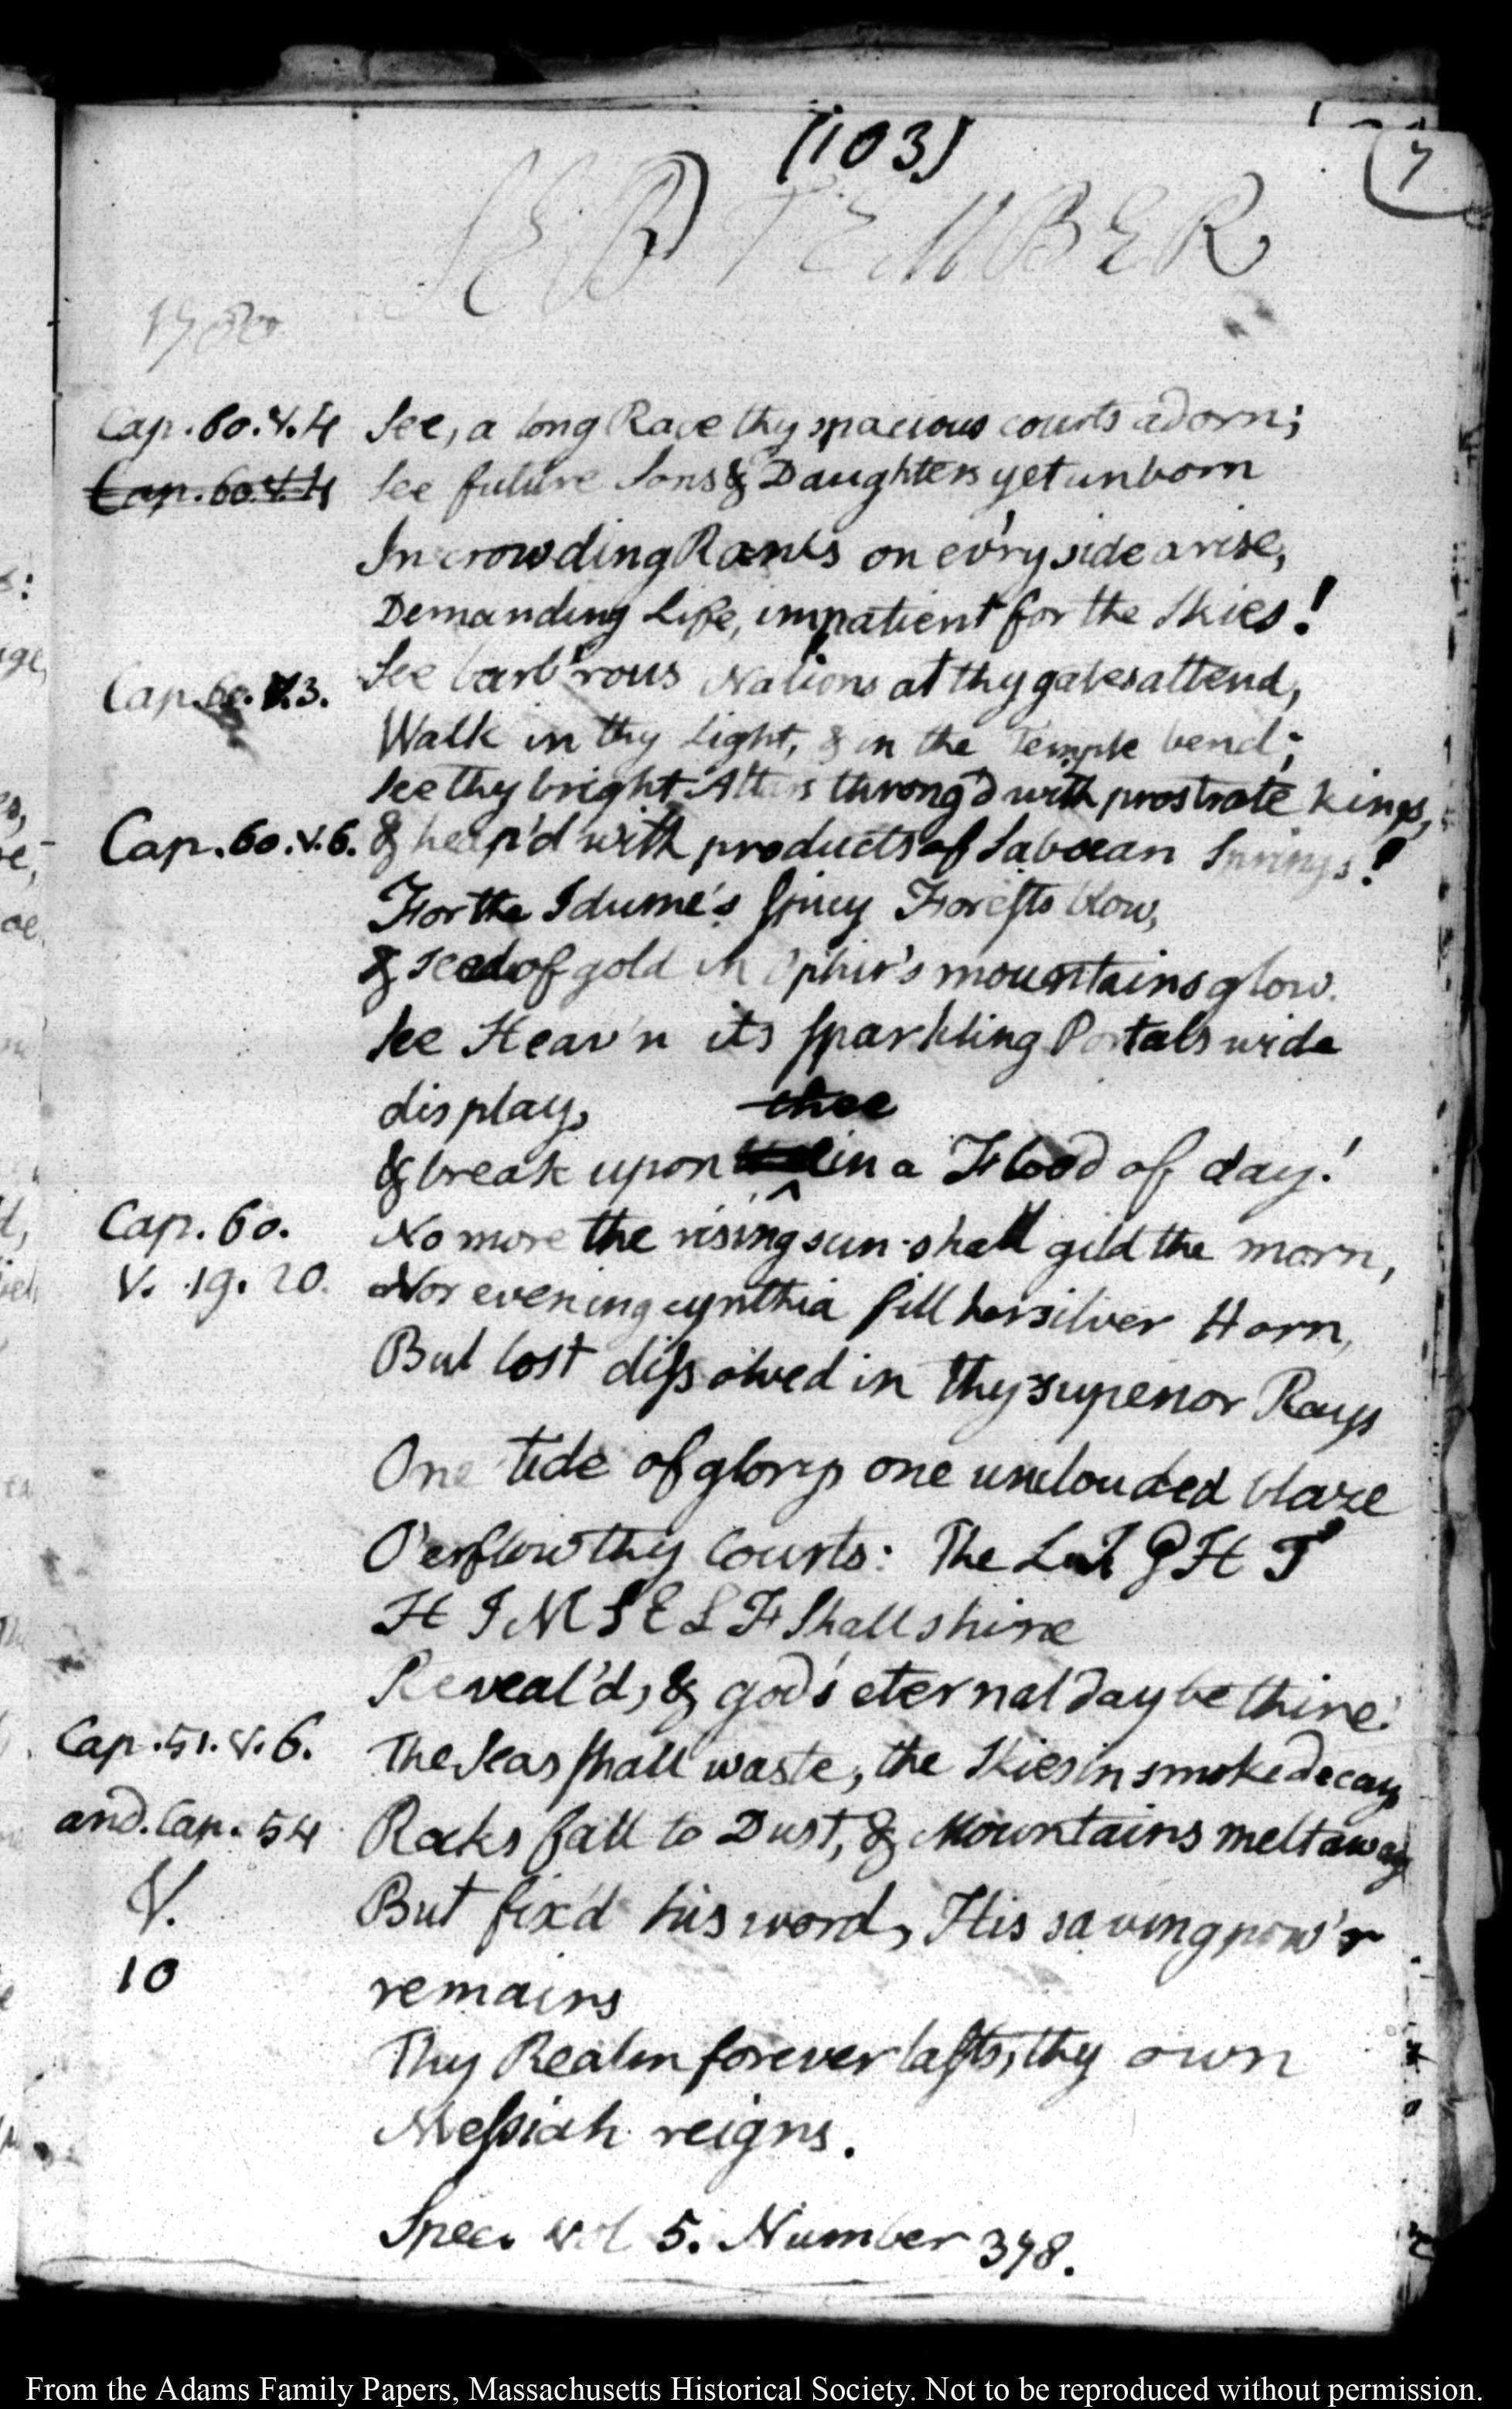 (103)
7
SEPTEMBER
1780
Cap. 60. v. 4 See, a long Race thy spacious courts adorn;
Cap. 60. v. 4 See future Sons & Daughters yet unborn
In crowding Ranks on ev'ry side arise,
Demanding Life, impatient for the Skies!
Cap. 60. v. 3. See barb'rous Nations at thy gates attend,
Walk in thy Light, & in the Temple bend;
See thy bright Altars throng'd with prostrate kings,
Cap. 60. v. 6. & heap'd with products of Sabœan Springs!
For the Idume's spicy Forests blow,
& seeds of gold in Ophir's mountains glow.
See Heav'n its sparkling Portals wide
display,
thee
& break upon in a Flood of day!
Cap. 60. No more the rising sun shall gild the morn,
V. 19. 20. Nor evening cynthia fill her silver Horn,
But lost dissolved in thy superior Rays
One tide of glory one unclouded blaze
O'erflow thy Courts: The LIGHT
HIMSELF Shall shine
Reveal'd, & god's eternal day be thine!
Cap. 51. v. 6. The Seas shall waste, the Skies in smoke decay
and. Cap. 54 Rocks fall to Dust, & Mountains melt away
V. But fix'd his word, His saving pow'r
10 remains
Thy Realm forever lasts, thy own
Messiah reigns.
Spec. vol 5. Number 378.
From the Adams Family Papers, Massachusetts Historical Society. Not to be reproduced without permission.